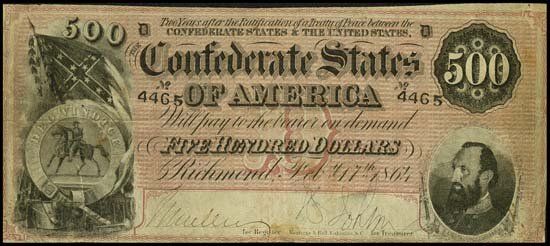 500
D
Two Years after the Ratification of a Treaty of Peace between the
CONFEDERATE STATES & THE UNITED STATES,
D
THE
Confederate States
500
No 4465
No 4465
OF AMERICA
Will pay to the bearer on demand
FIVE HUNDRED DOLLARS
Richmond, Feb.y 17th 1864
for Register
for Treasurer